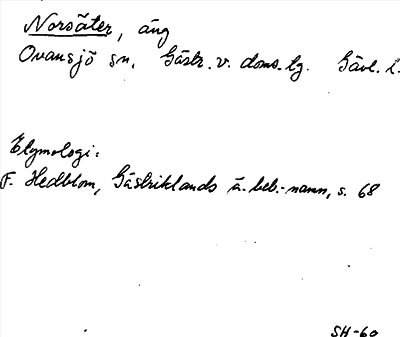 Norsäter, äng
Ovansjö sn. Gästr. v. doms.-lg. Gävl. l.
Etymologi:
F. Hedblom, Gästriklands ä. beb.-namn, s. 68
SH-60